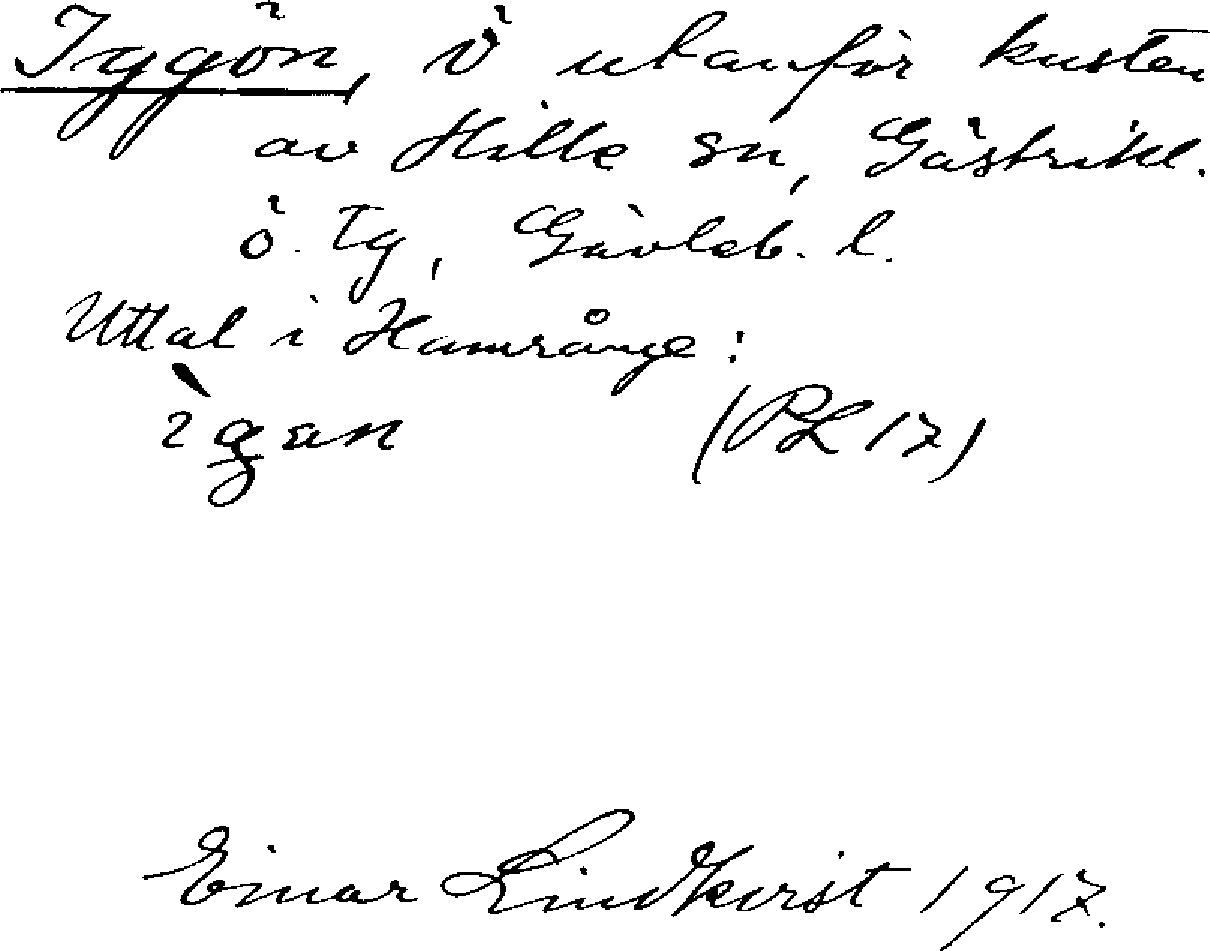 Iggön, Ö utanför kusten
av Hille sn, Gästrikl.
ö. Tg, Gävleb. l.
Uttal i Hamrånge:
ìgan (PL 17)
Einar Lindkvist 1917.